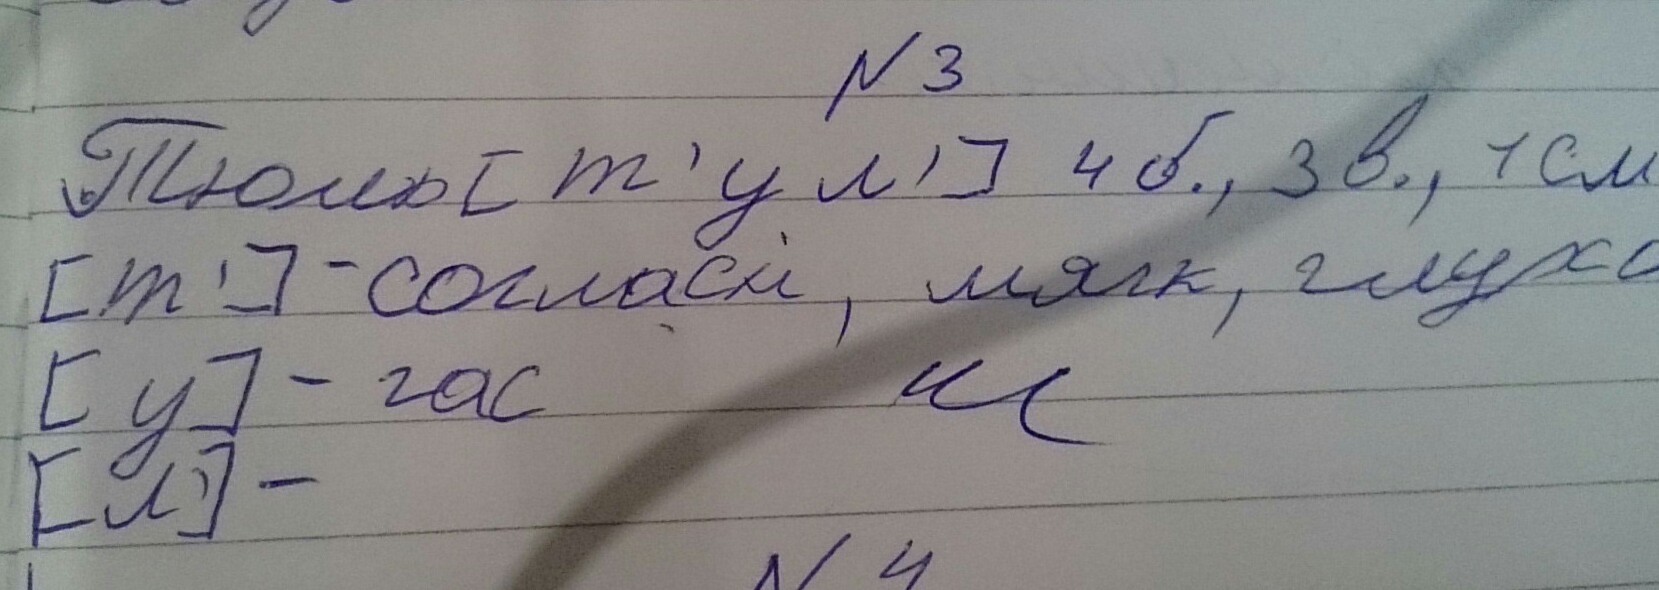 N 3
Тюль [т'ул'] 4 б., 3 в., 1 сл
[т'] - согласн, мягк, глухо
[у] - гас
[л'] -
N 4